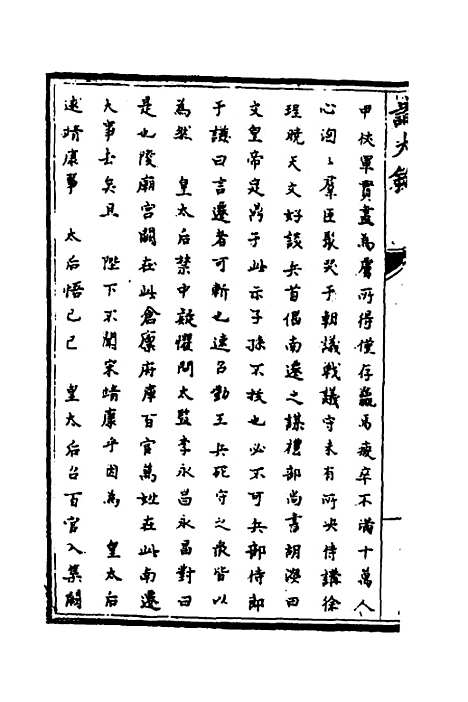 甲仗軍實盡為虜所得僅存羸馬疲卒不滿十萬人
心洶〻羣臣聚哭于朝議戰議守未有所决侍講徐
珵曉天文好談兵首倡南遷之謀禮部尚書胡濙曰
文皇帝定鼎于此示子孫不拔也必不可兵部侍郎
于謙曰言遷者可斬也速召勤王兵死守之衆皆以
為然　皇太后禁中疑懼問太監李永昌永昌對曰
是也陵廟宮闕在此倉廩府庫百官萬姓在此南遷
大事去矣且　陛下不聞宋靖康乎因為　皇太后
述靖康事　太后悟己巳　皇太后召百官入集闕